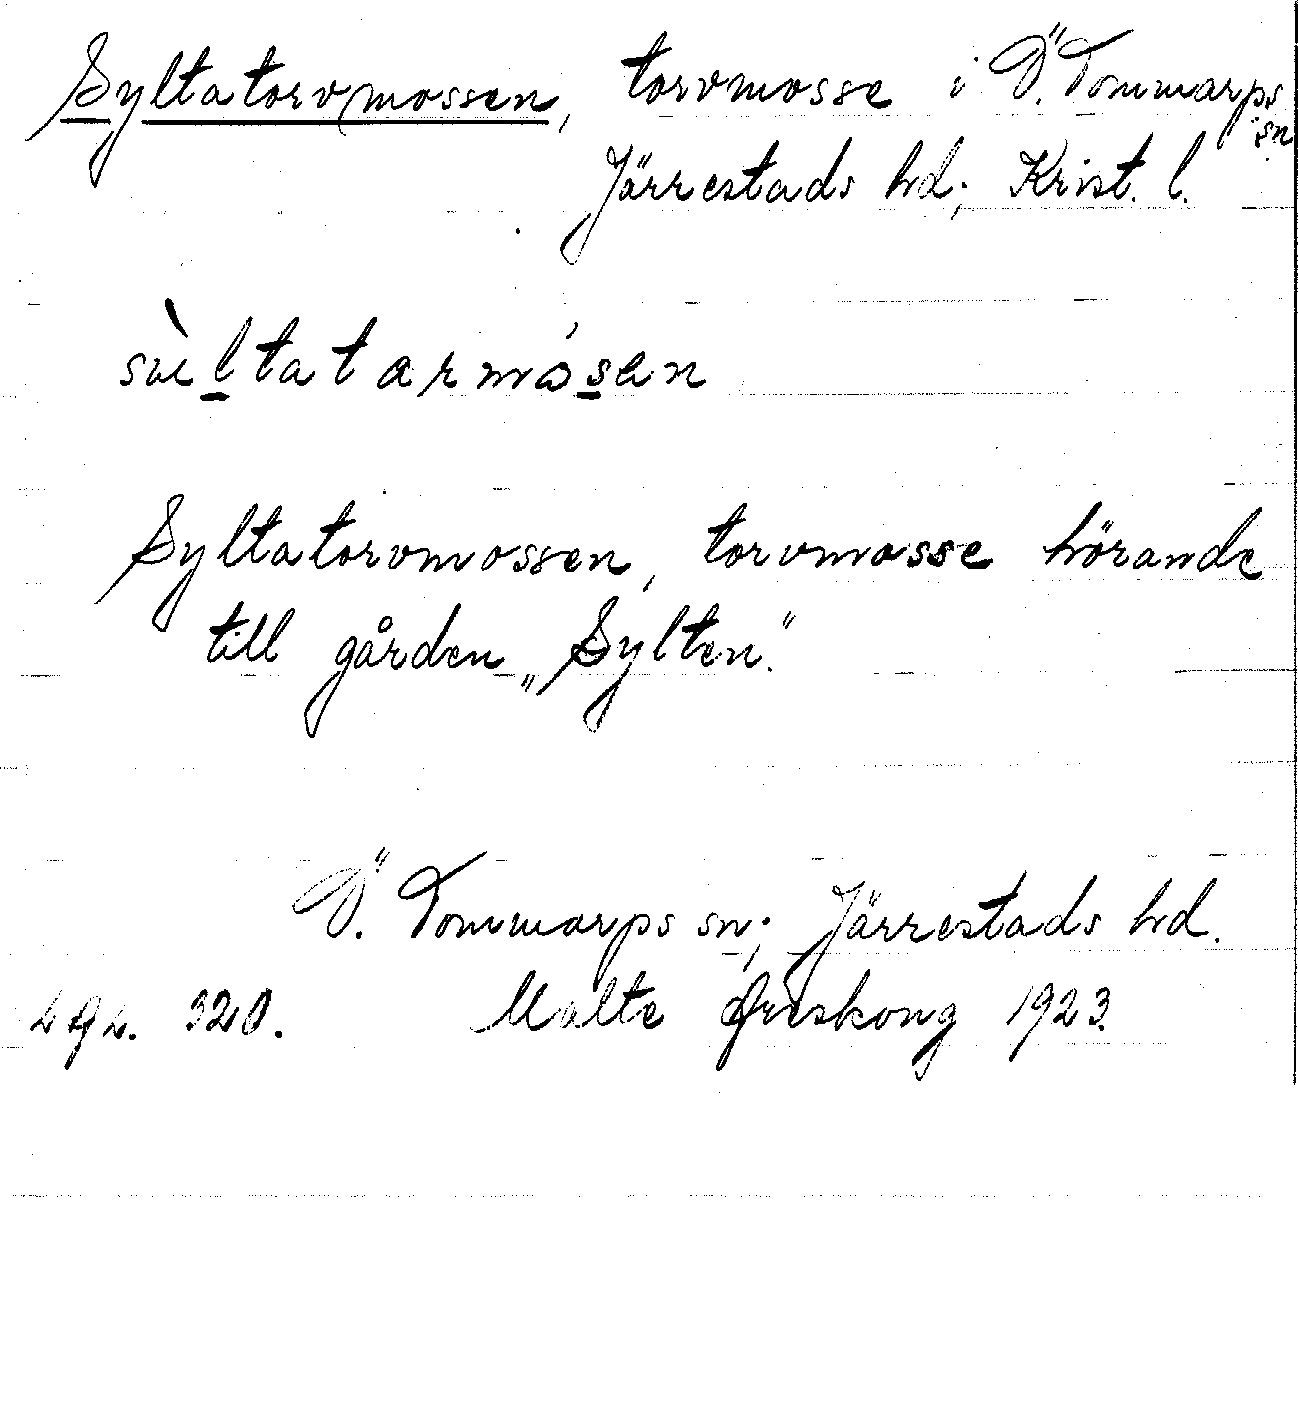 Syltatorvmossen, torvmosse i Ö. Tommarps sn
Järrestads hd; Krist. l.
Syltatorvmossen, torvmosse hörande
till gården „Sylten."
Ö. Tommarps sn; Järrestads hd.
320. Malte 1923.